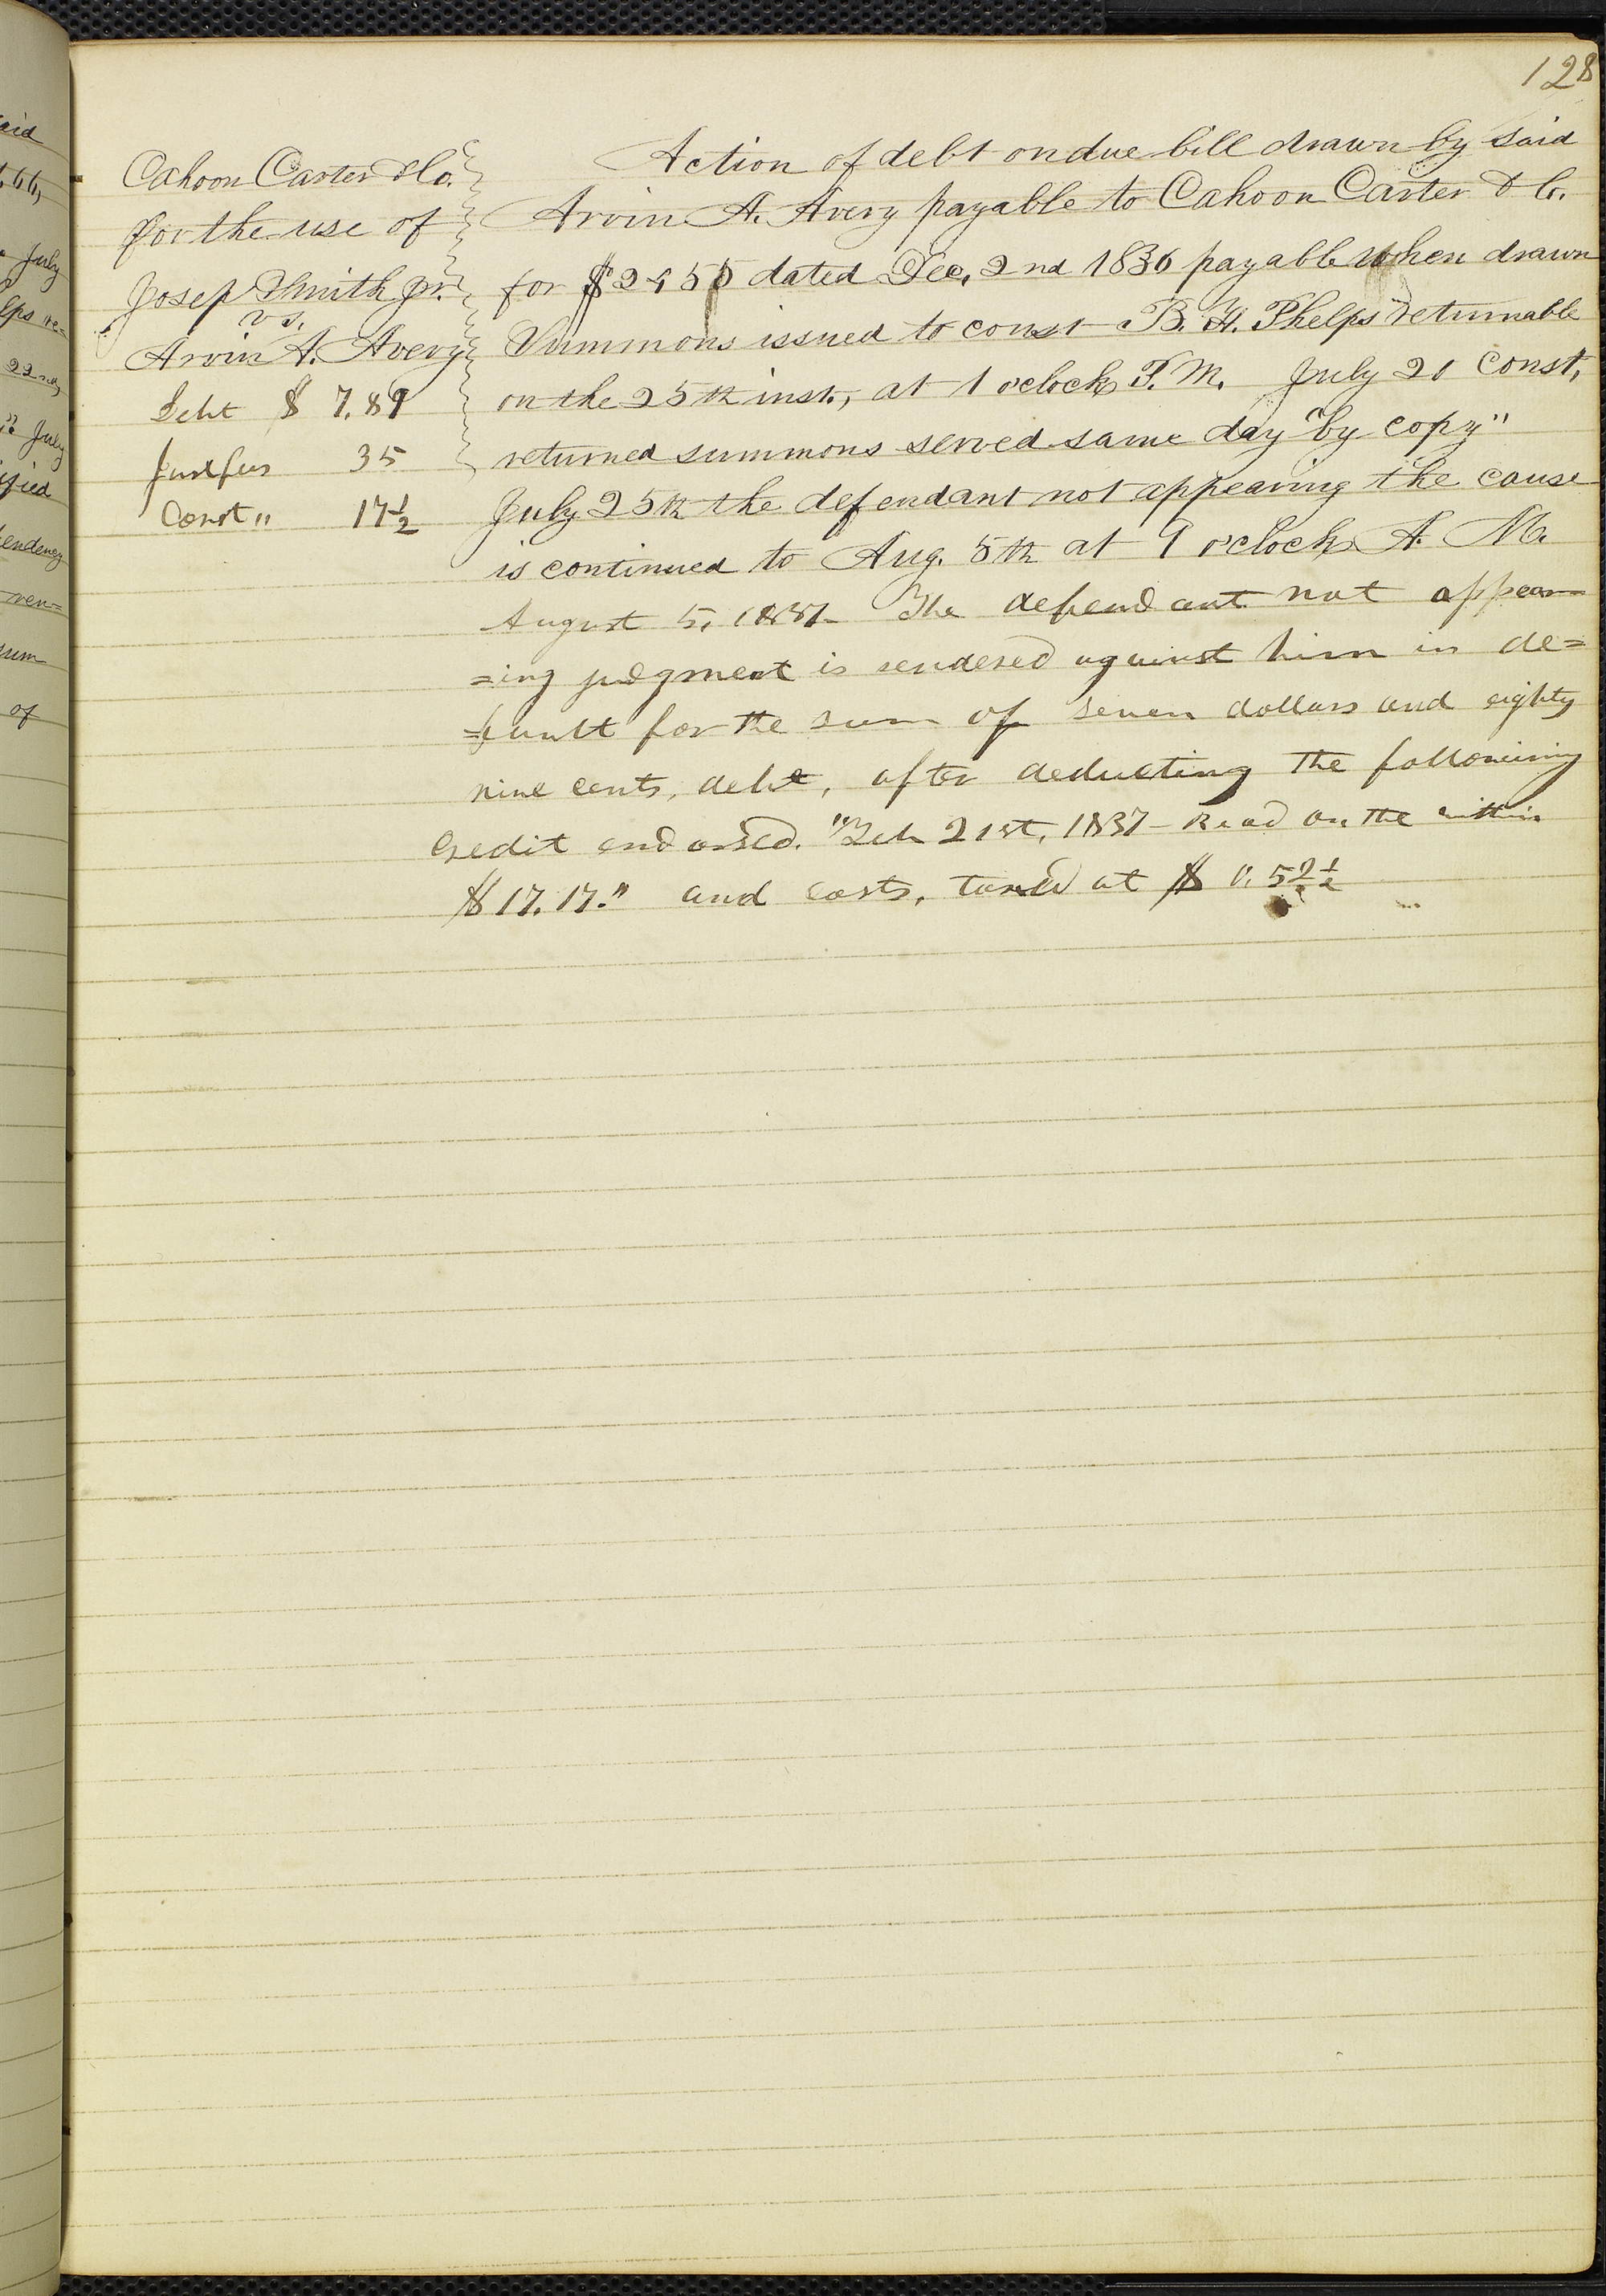 128
Cahoon Carter & Co.
for the use of
Josep Smith Jr.
vs.
Arvin A. Avery
Debt $ 7.89
Just fees 35
Const " 17½
Action of debt on due bill drawn by said
Arvin A. Avery payable to Cahoon Carter & C.
for $24 55 dated Dec, 2nd 1836 payable when drawn
Summons issued to const B. H. Phelps returnable
on the 25th inst., at 1 o'clock P. M. July 20 Const,
returned summons served same day "by copy"
July 25th the defendant not appearing the cause
is continued to Aug. 5th at 9 o'clock A. M.
August 5, 1837 - The defendant not appear=
=ing judgment is rendered against him in de=
=fault for the sum of seven dollars and eighty
nine cents, debt, after deducting the following
credit endorsed. "Feb 21st, 1837 - Read on the within
$17.17." and costs, taxed at $ 0.52½
aid
July
lps re=
22nd,
July
ified
endency
ren=
sum
of